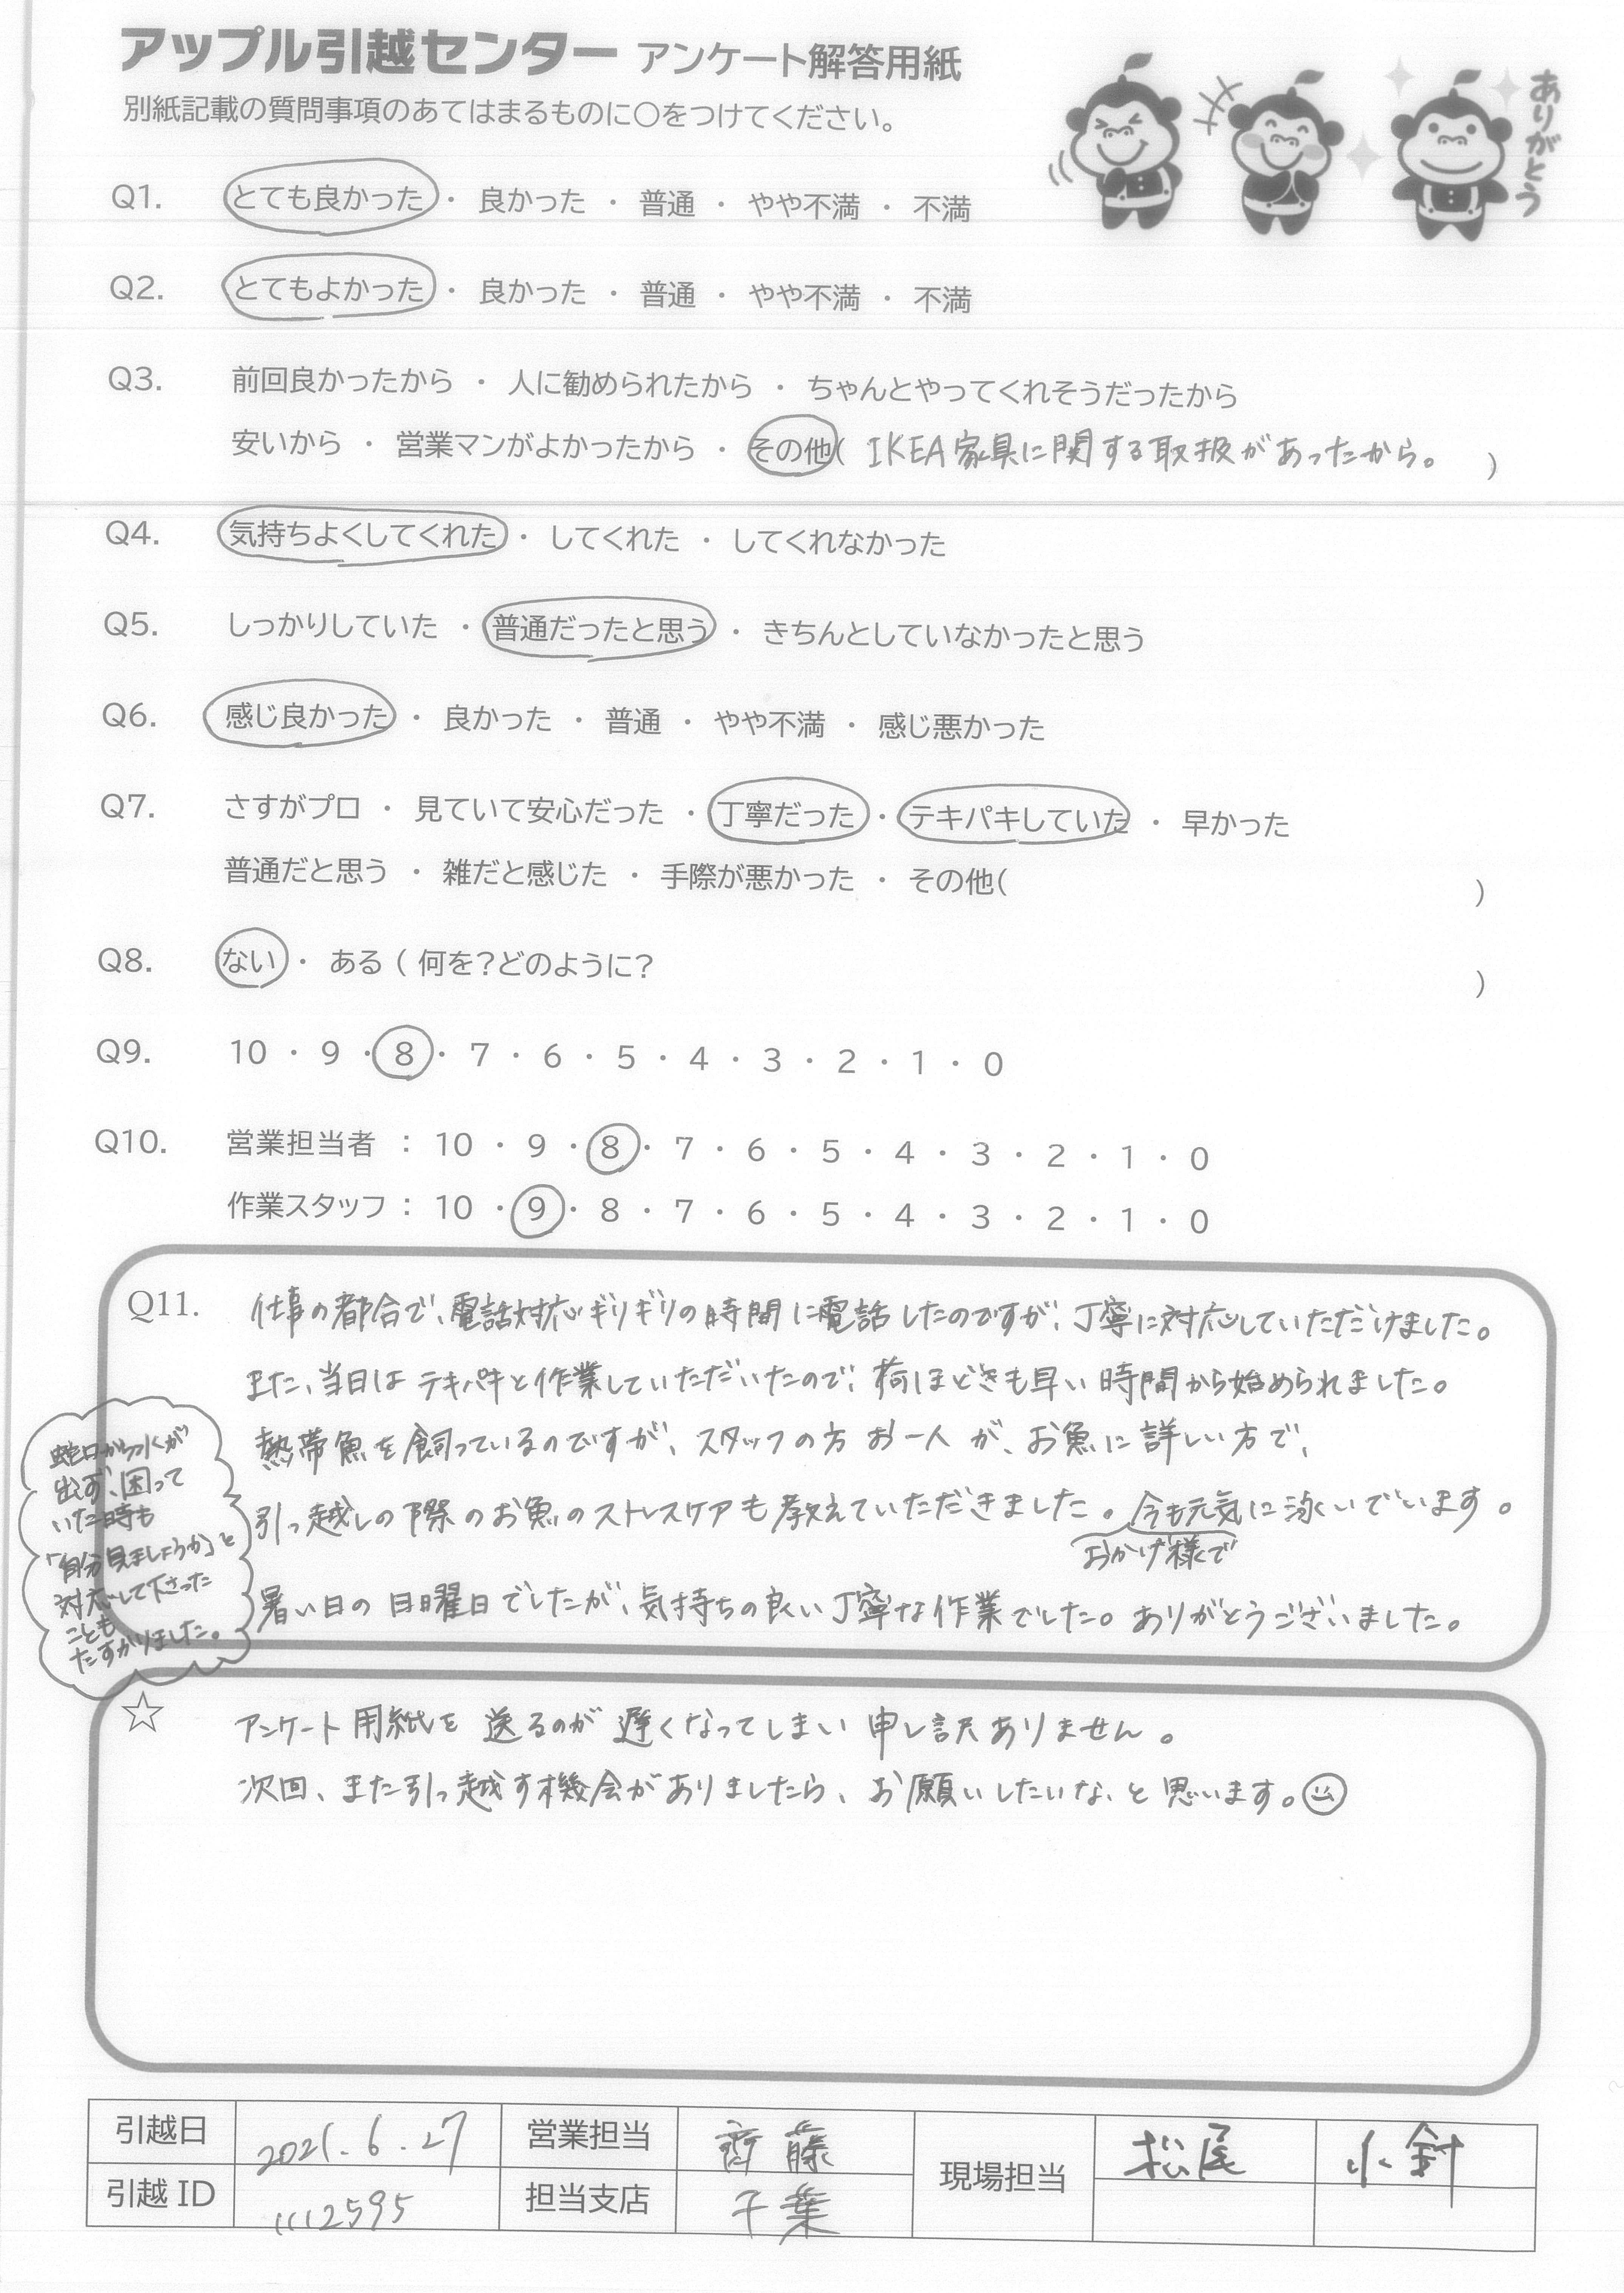 アップル引越センター アンケート解答用紙
別紙記載の質問事項のあてはまるものに○をつけてください。
ありがとう
Q1. とても良かった ・ 良かった ・ 普通 ・ やや不満 ・ 不満
Q2. とてもよかった ・ 良かった ・ 普通 ・ やや不満 ・ 不満
Q3. 前回良かったから ・ 人に勧められたから ・ ちゃんとやってくれそうだったから
安いから ・ 営業マンがよかったから ・ その他( IKEA家具に関する取扱があったから。 )
Q4. 気持ちよくしてくれた ・ してくれた ・ してくれなかった
Q5. しっかりしていた ・ 普通だったと思う ・ きちんとしていなかったと思う
Q6. 感じ良かった ・ 良かった ・ 普通 ・ やや不満 ・ 感じ悪かった
Q7. さすがプロ ・ 見ていて安心だった ・ 丁寧だった ・ テキパキしていた ・ 早かった
普通だと思う ・ 雑だと感じた ・ 手際が悪かった ・ その他( )
Q8. ない ・ ある ( 何を?どのように? )
Q9. 10 ・ 9 ・ 8 ・ 7 ・ 6 ・ 5 ・ 4 ・ 3 ・ 2 ・ 1 ・ 0
Q10. 営業担当者 : 10 ・ 9 ・ 8 ・ 7 ・ 6 ・ 5 ・ 4 ・ 3 ・ 2 ・ 1 ・ 0
作業スタッフ : 10 ・ 9 ・ 8 ・ 7 ・ 6 ・ 5 ・ 4 ・ 3 ・ 2 ・ 1 ・ 0
Q11. 仕事の都合で、電話対応ギリギリの時間に電話したのですが、丁寧に対応していただけました。
また、当日はテキパキと作業していただいたので、荷ほどきも早い時間から始められました。
熱帯魚を飼っているのですが、スタッフの方お一人が、お魚に詳しい方で、
引っ越しの際のお魚のストレスケアも教えていただきました。今も元気に泳いでいます。
おかげ様で
暑い日の日曜日でしたが、気持ちの良い丁寧な作業でした。ありがとうございました。
蛇口から水が
出ず、困って
いた時も
「自分見ましょうか」と
対応して下さった
ことも
たすかりました。
☆ アンケート用紙を送るのが遅くなってしまい申し訳ありません。
次回、また引っ越す機会がありましたら、お願いしたいな、と思います。
引越日 2021.6.27 営業担当 齊藤 現場担当 松尾 小針
引越 ID 1112595 担当支店 千葉